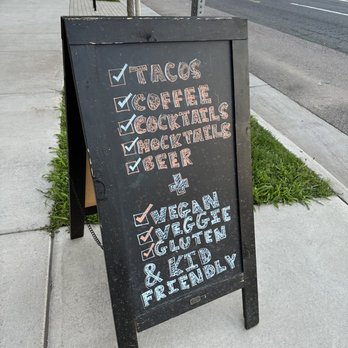 TACOS
COFFEE
COCKTAILS
MOCKTAILS
BEER
+
VEGAN
VEGGIE
GLUTEN
& KID
FRIENDLY